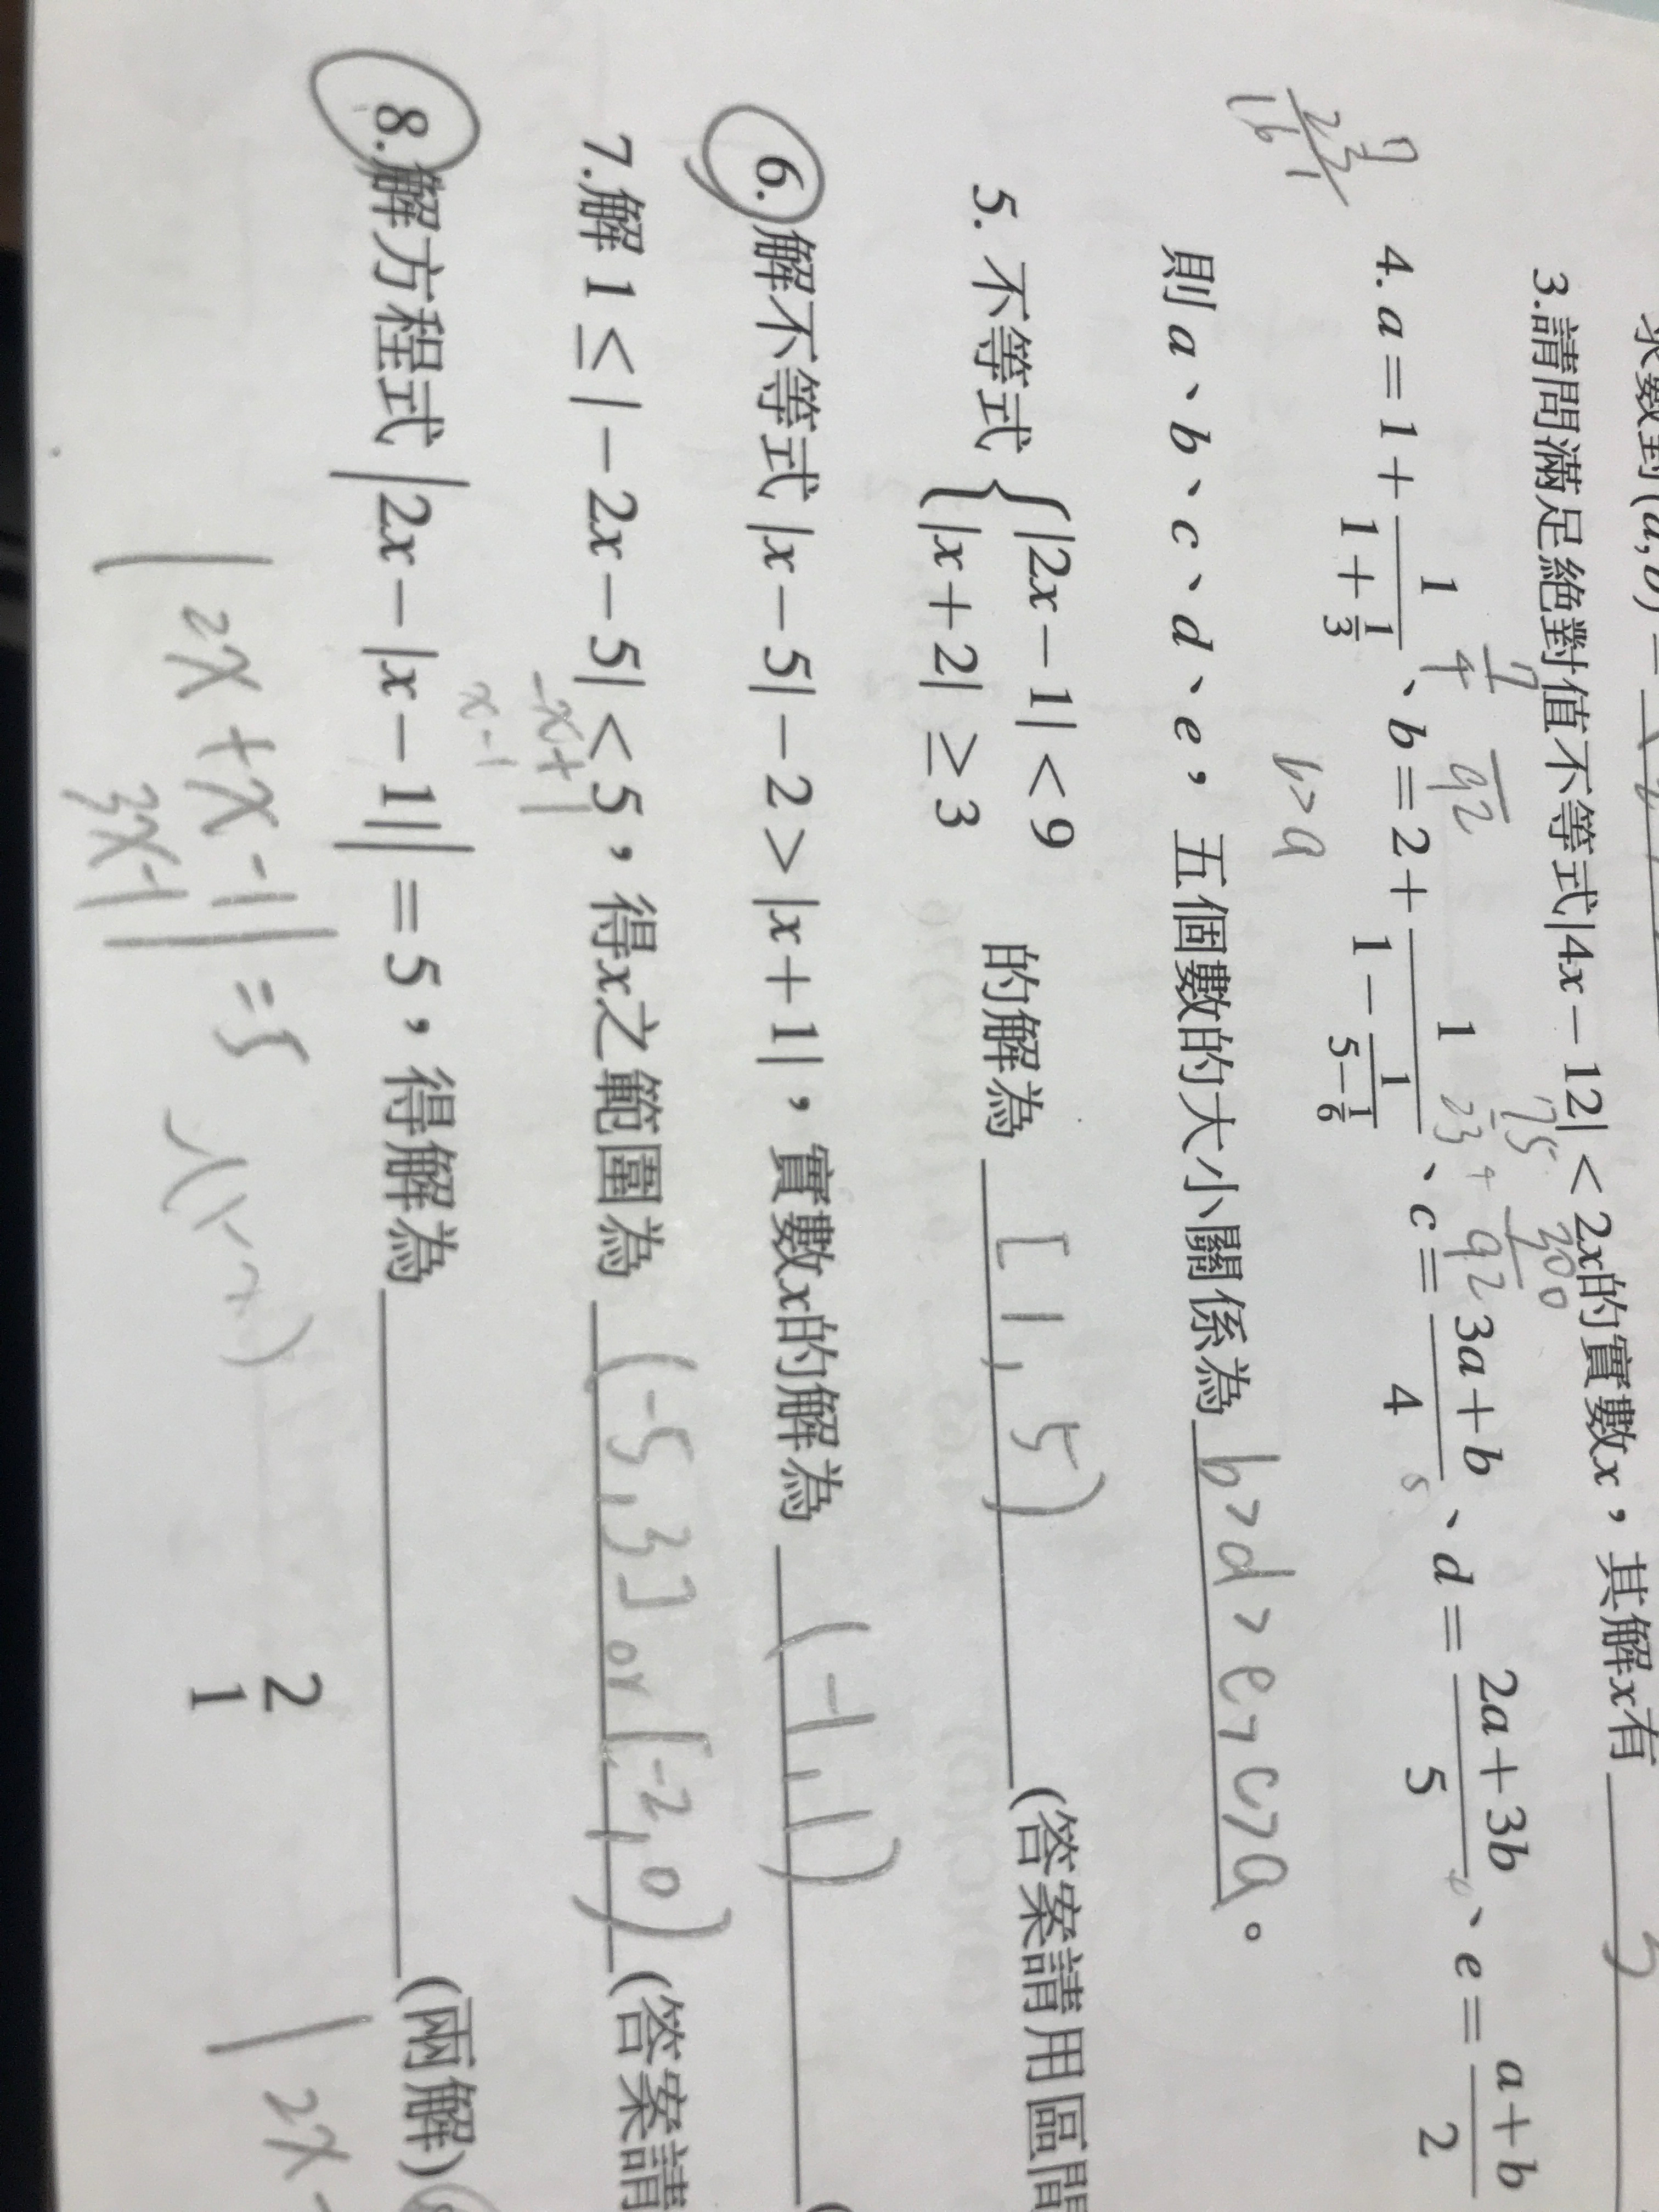 求數對(a,b)=
3.請問滿足絕對值不等式|4x－12|＜2x的實數x，其解x有
4. a＝1＋1/(1＋1/3)、b＝2＋1/(1－1/(5－1/6))、c＝(3a＋b)/4、d＝(2a＋3b)/5、e＝(a＋b)/2
b>a
則 a、b、c、d、e，五個數的大小關係為 b>d>e>c>a。
5. 不等式 {|2x－1|＜9
|x＋2|≥3 的解為 [1, 5) (答案請用區間
6.解不等式|x－5|－2＞|x＋1|，實數x的解為 (-1, 1)
7.解 1≤|－2x－5|＜5，得x之範圍為 (-5, 3] or [-2, 0) (答案請
-x+1
x-1
8.解方程式|2x－|x－1||＝5，得解為 (兩解)
|2x+x-1|=5
3x-1
2
1
|2x-